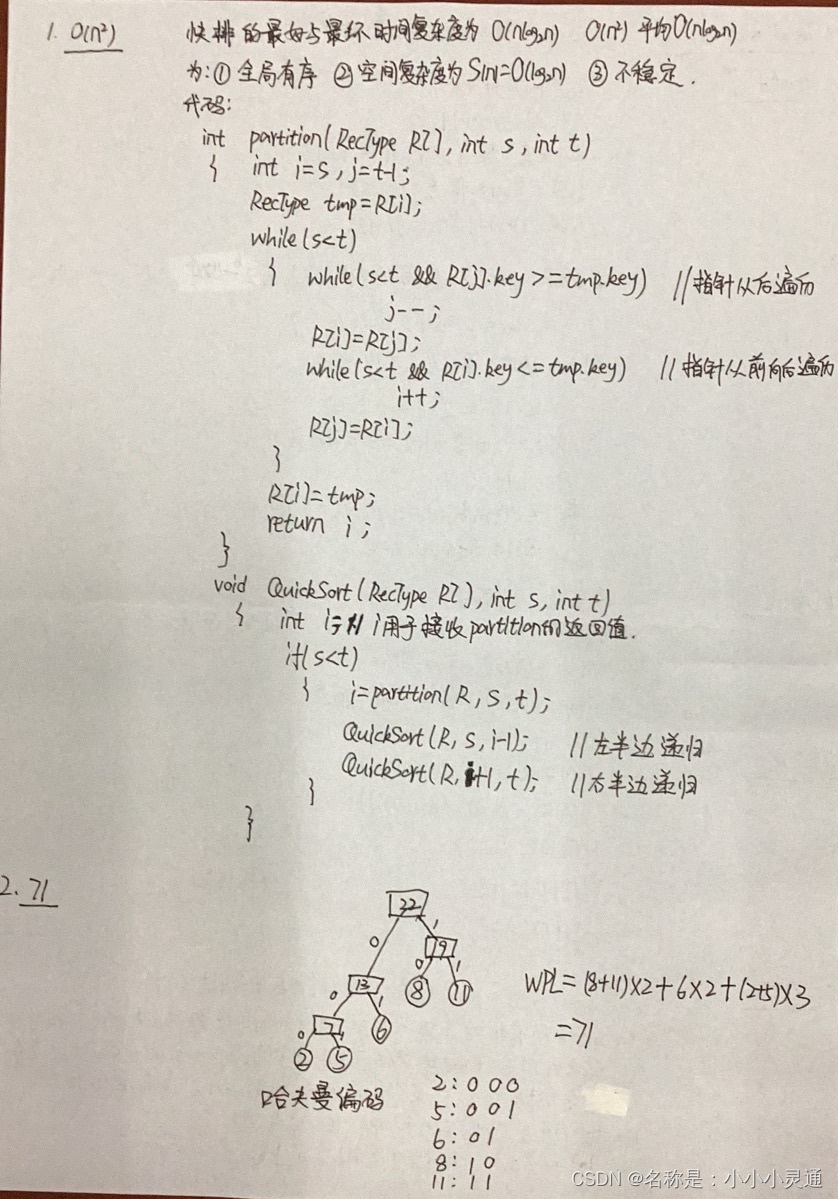 1. O(n²) 快排的最好与最坏时间复杂度为 O(nlog₂n) O(n²) 平均O(nlog₂n)
为:① 全局有序 ② 空间复杂度为S(n)=O(log₂n) ③ 不稳定.
代码:
int partition(RecType R[], int s, int t)
{ int i=s, j=t-1;
RecType tmp=R[i];
while(s<t)
{ while(s<t && R[j].key>=tmp.key) //指针从后遍历
j--;
R[i]=R[j];
while(s<t && R[i].key<=tmp.key) //指针从前向后遍历
i++;
R[j]=R[i];
}
R[i]=tmp;
return i;
}
void QuickSort(RecType R[], int s, int t)
{ int i; // i用于接收partition的返回值.
if(s<t)
{ i=partition(R,s,t);
QuickSort(R,s,i-1); //左半边递归
QuickSort(R,i+1,t); //右半边递归
}
}
2. 71
32
0 1
13 19
0 1 0 1
7 6 8 11
0 1
2 5
WPL=(8+11)×2+6×2+(2+5)×3
=71
哈夫曼编码
2:000
5:001
6:01
8:10
11:11
CSDN @名称是:小小小灵通